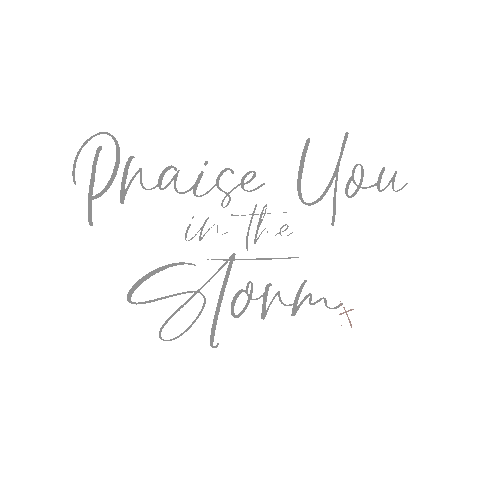 Praise You
in the
Storm